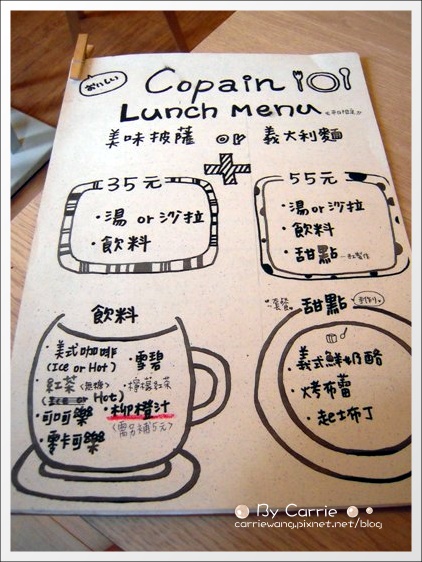 おいしい
Copain
Lunch Menu
美味披薩 or 義大利麵
35元
・湯 or 沙拉
・飲料
55元
・湯 or 沙拉
・飲料
・甜點
飲料
・美式咖啡
(Ice or Hot)
・雪碧
・紅茶<無糖>
Hot)
・檸檬紅茶
・可口可樂
・柳橙汁
<需另補5元>
・零卡可樂
套餐 甜點 手作り
・義式鮮奶酪
・烤布蕾
・起士布丁
By Carrie
carriewang.pixnet.net/blog